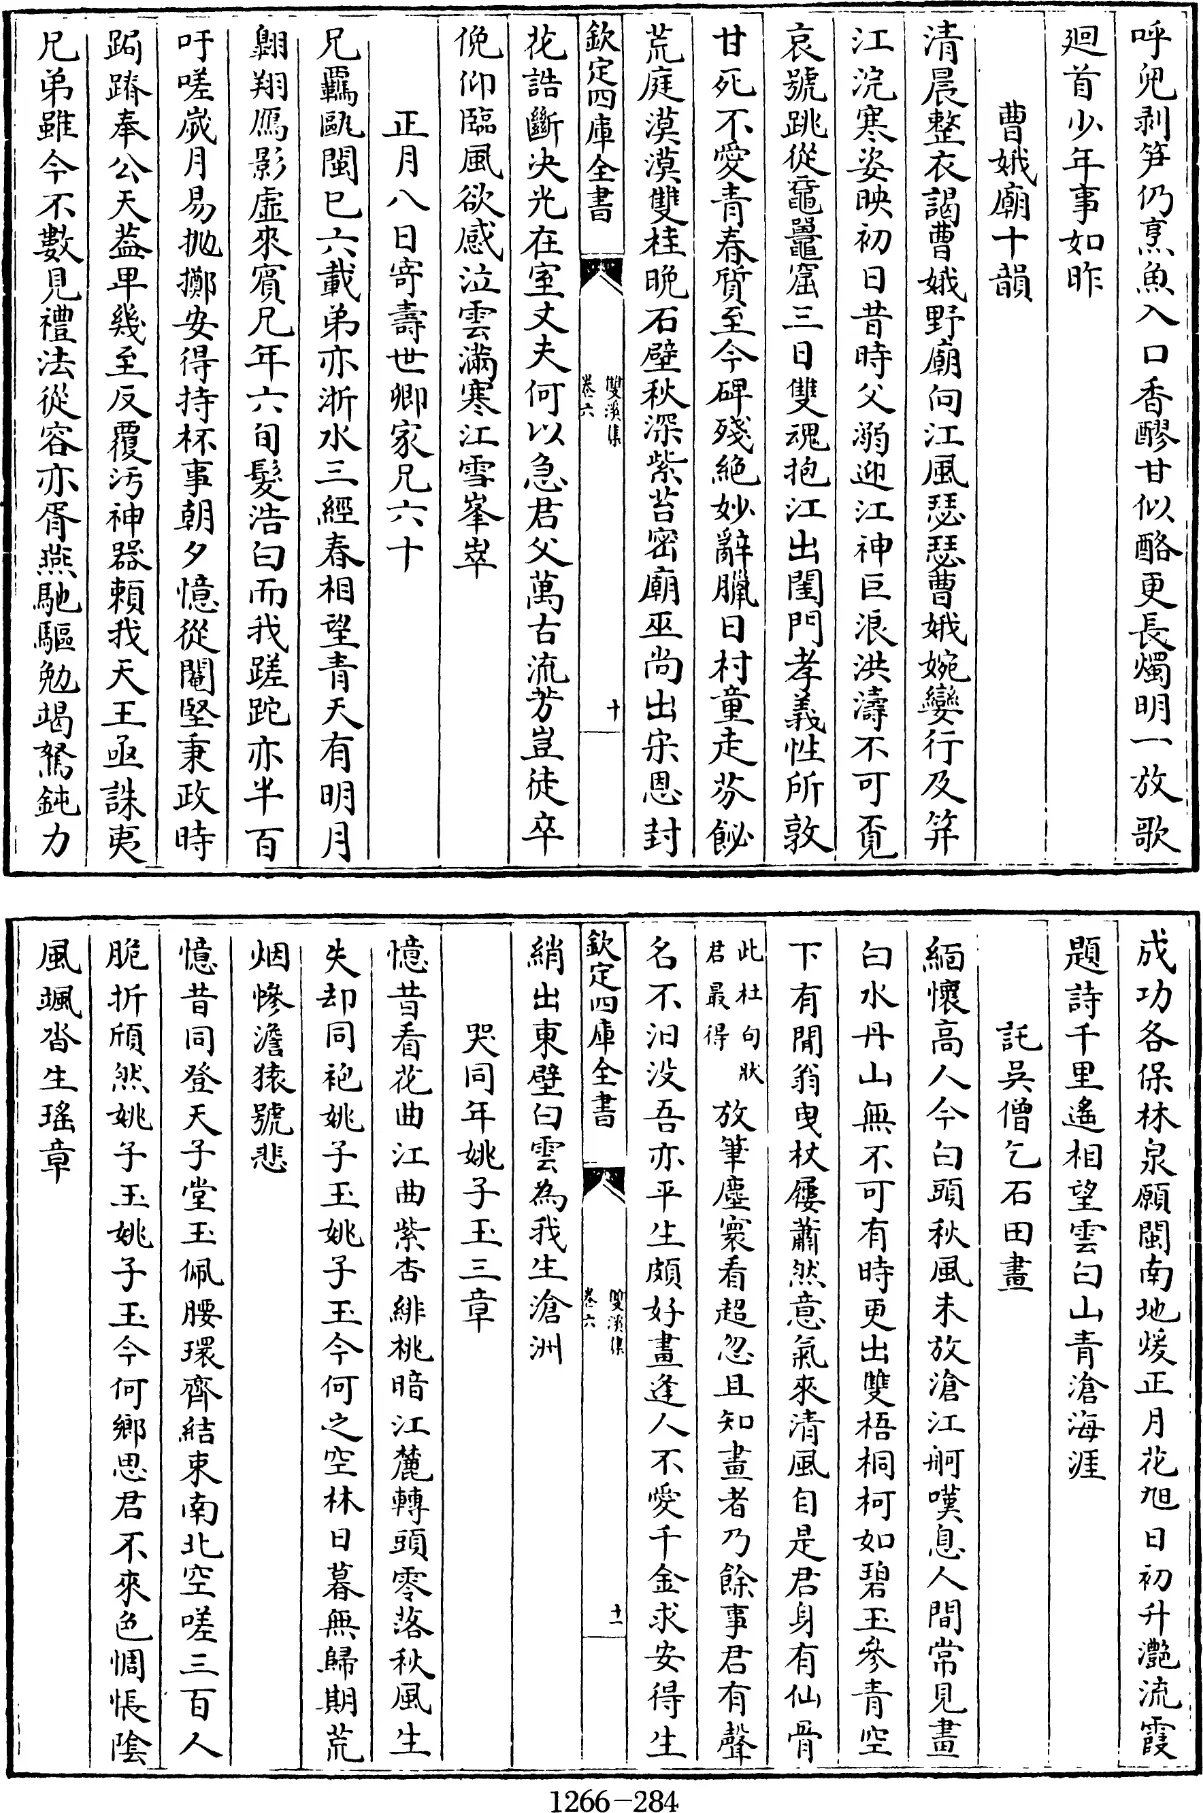 呼兒剥笋仍烹魚入口香醪甘似酪更長燭明一放歌
廻首少年事如昨
曹娥廟十韻
清晨整衣謁曹娥野廟向江風瑟瑟曹娥婉孌行及笄
江浣寒姿映初日昔時父溺迎江神巨浪洪濤不可覔
哀號跳從黿鼉窟三日雙魂抱江出閨門孝義性所敦
甘死不愛青春質至今碑殘絶妙辭臘日村童走芬飶
荒庭漠漠雙桂晩石壁秋深紫苔密廟巫尚出宋恩封
欽定四庫全書
雙溪集
卷六
十
花誥斷决光在室丈夫何以急君父萬古流芳豈徒卒
俛仰臨風欲感泣雲滿寒江雪峯崒
正月八日寄壽世卿家兄六十
兄羈甌閩已六載弟亦浙水三經春相望青天有明月
翺翔鴈影虛來賓兄年六旬髮浩白而我蹉跎亦半百
吁嗟歲月易抛擲安得持杯事朝夕憶從閹竪秉政時
跼蹐奉公天葢卑幾至反覆汚神器賴我天王亟誅夷
兄弟雖今不數見禮法從容亦胥燕馳驅勉竭駑鈍力
成功各保林泉願閩南地煖正月花旭日初升灔流霞
題詩千里遙相望雲白山青滄海涯
託吳僧乞石田畫
緬懷高人今白頭秋風未放滄江舸嘆息人間常見畫
白水丹山無不可有時更出雙梧桐柯如碧玉參青空
下有閒翁曳杖屨蕭然意氣來清風自是君身有仙骨
此杜句狀
君最得
放筆塵寰看超忽且知畫者乃餘事君有聲
名不汩没吾亦平生頗好畫逢人不愛千金求安得生
欽定四庫全書
雙溪集
卷六
十一
綃出東壁白雲為我生滄洲
哭同年姚子玉三章
憶昔看花曲江曲紫杏緋桃暗江麓轉頭零落秋風生
失却同袍姚子玉姚子玉今何之空林日暮無歸期荒
烟慘澹猿號悲
憶昔同登天子堂玉佩腰環齊結束南北空嗟三百人
脆折頎然姚子玉姚子玉今何鄉思君不來色惆悵陰
風颯沓生瑤章
1266-284